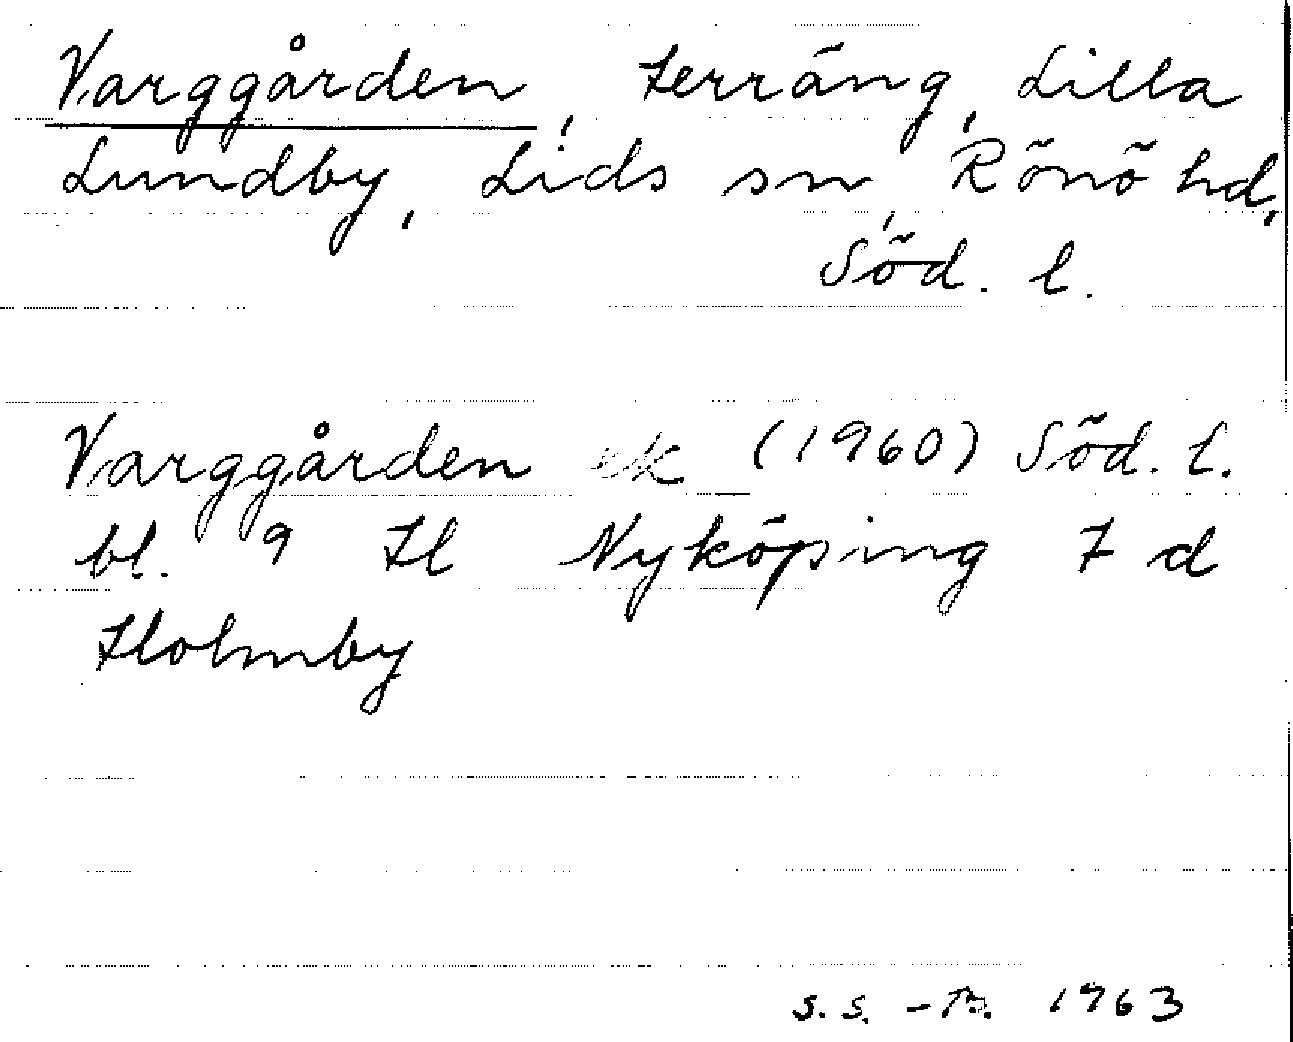 Varggården, terräng, Lilla
Lundby, Lids sn, Rönö hd,
Söd. l.
Varggården ek (1960) Söd. l.
bl. 9 H Nyköping 7 d
Holmby
S.S. - B. 1963